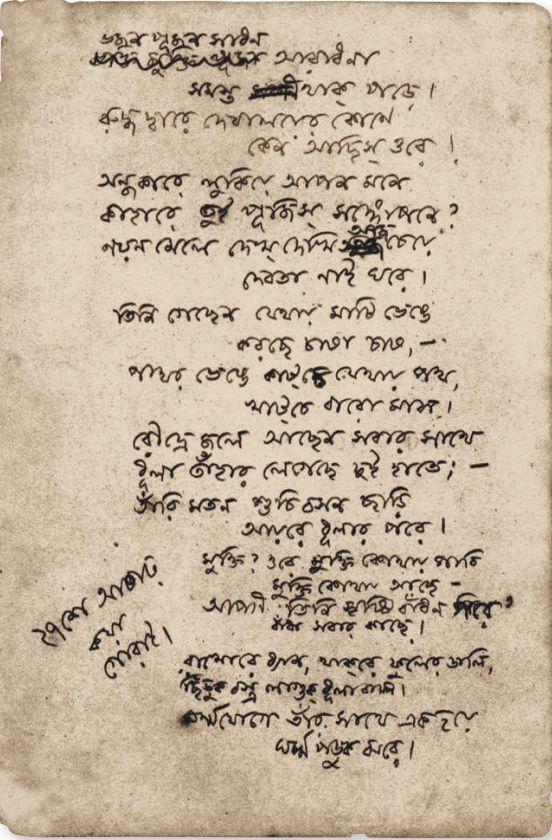 ভজন পূজন সাধন
আরাধনা
সমস্ত থাক্ পড়ে।
রুদ্ধ দ্বারে দেবালয়ের কোণে
কেন আছিস্ ওরে।
অন্ধকারে লুকিয়ে আপন মনে
কাহারে তুই পূজিস্ সঙ্গোপনে?
নয়ন মেলে দেখ্ দেখি চেয়ে
দেবতা নাই ঘরে।
তিনি গেছেন যেথায় মাটি ভেঙে
করছে চাষা চাষ,—
পাথর ভেঙে কাট্‌চে যেথায় পথ,
খাট্‌চে বারো মাস।
রৌদ্রে জলে আছেন সবার সাথে
ধূলা তাঁহার লেগেছে দুই হাতে; —
তাঁরি মতন শুচি বসন ছাড়ি
আয়রে ধূলার পরে।
মুক্তি? ওরে মুক্তি কোথায় পাবি
মুক্তি কোথায় আছে –
আপনি তিনি বাঁধন পরে
বাঁধা সবার কাছে।
রাখোরে ধ্যান, থাক্‌রে ফুলের ডালি,
ছিঁড়ুক বস্ত্র লাগুক ধূলাবালি।
কর্ম্মযোগে তাঁর সাথে এক হয়ে
ঘর্ম্ম পড়ুক ঝরে।
২৭শে আষাঢ়
কয়া
গোরাই।